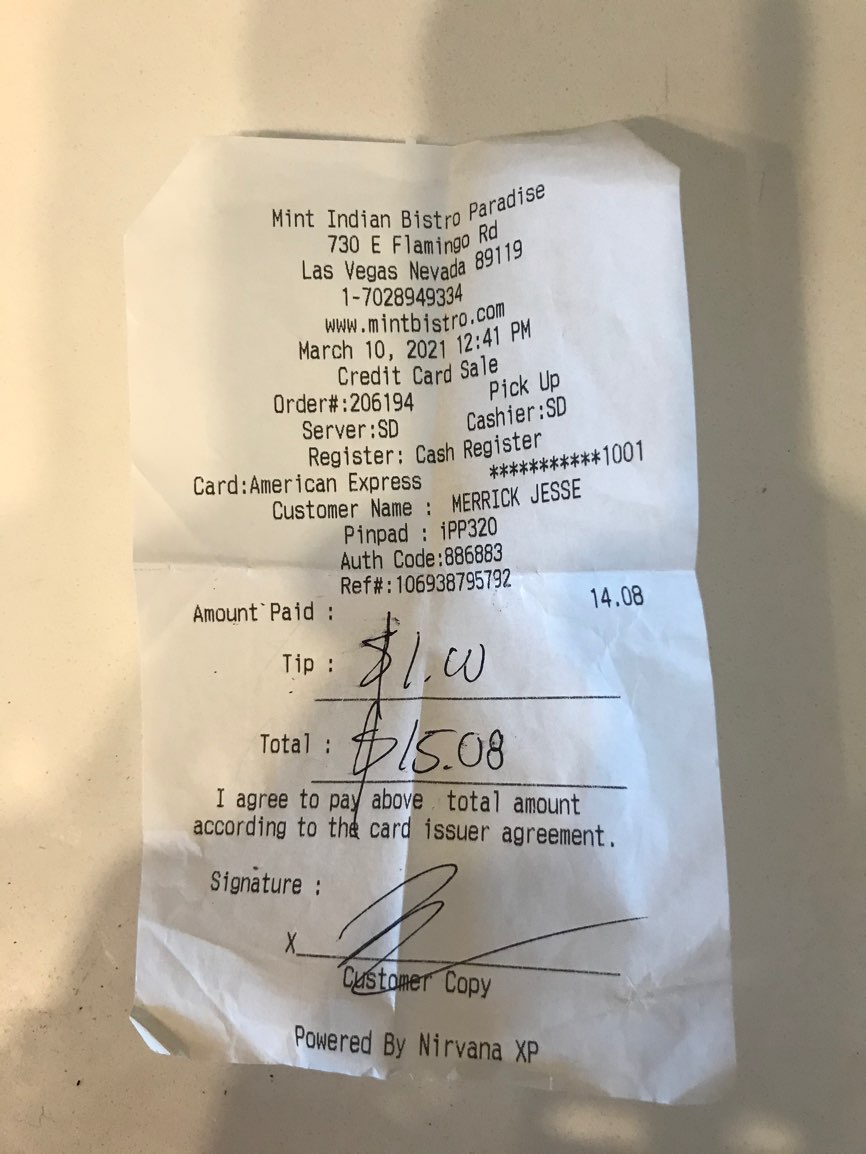 Mint Indian Bistro Paradise
730 E Flamingo Rd
Las Vegas Nevada 89119
1-7028949334
www.mintbistro.com
March 10, 2021 12:41 PM
Credit Card Sale
Order#:206194 Pick Up
Server:SD Cashier:SD
Register: Cash Register
Card:American Express ***********1001
Customer Name : MERRICK JESSE
Pinpad : iPP320
Auth Code:886883
Ref#:106938795792
Amount Paid : 14.08
Tip : $1.00
Total : $15.08
I agree to pay above total amount
according to the card issuer agreement.
Signature :
X
Customer Copy
Powered By Nirvana XP